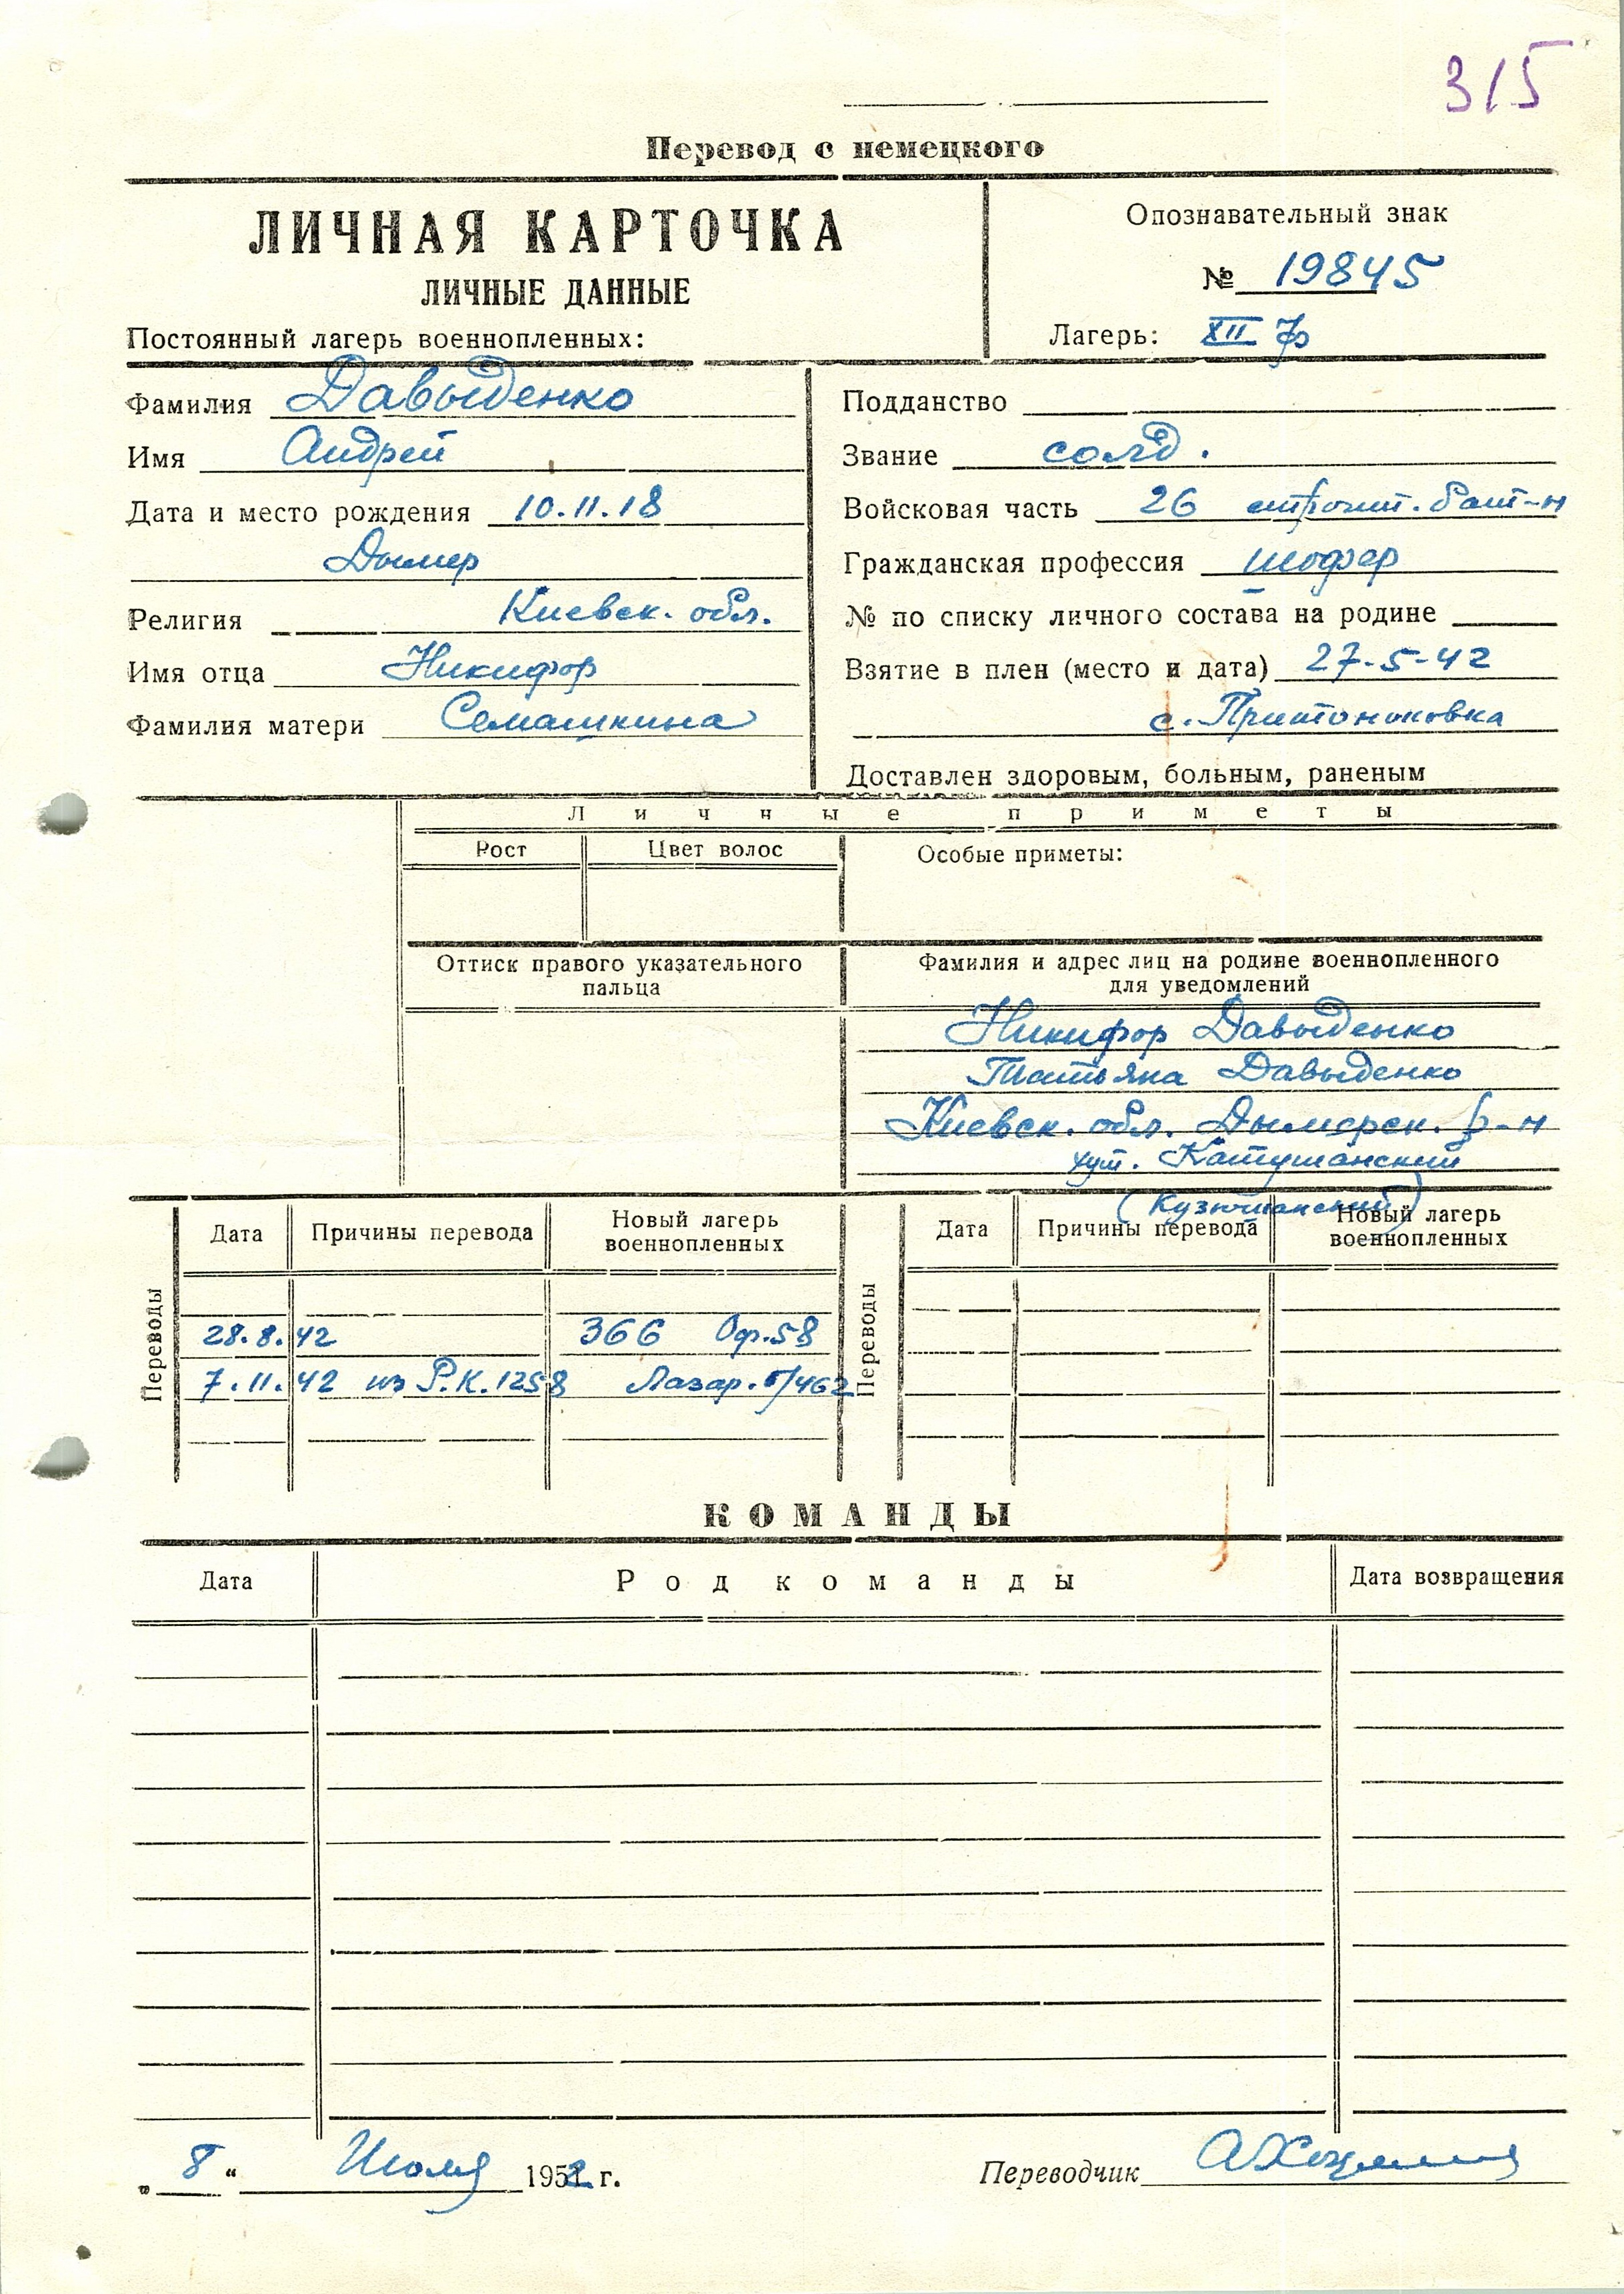 315
Перевод с немецкого
ЛИЧНАЯ КАРТОЧКА
ЛИЧНЫЕ ДАННЫЕ
Постоянный лагерь военнопленных:
Опознавательный знак
№ 19845
Лагерь: XII
Фамилия Давыденко
Имя Андрей
Дата и место рождения 10.11.18
Дымер
Киевск. обл.
Религия
Имя отца Никифор
Фамилия матери Семашкина
Подданство
Звание солд.
Войсковая часть 26 строит. бат-н
Гражданская профессия шофер
№ по списку личного состава на родине
Взятие в плен (место и дата) 27-5-42
с.
Доставлен здоровым, больным, раненым
Личные приметы
Рост
Цвет волос
Особые приметы:
Оттиск правого указательного
пальца
Фамилия и адрес лиц на родине военнопленного
для уведомлений
Никифор Давыденко
Татьяна Давыденко
Киевск. обл. Дымерск. р-н
хут. Катушанский
Переводы
Дата
Причины перевода
Новый лагерь
военнопленных
28.8.42 366 Оф.58
7.11.42 из Р.К.1258 Лазар. /462
Переводы
Дата
Причины перевода
Новый лагерь
военнопленных
КОМАНДЫ
Дата
Род команды
Дата возвращения
„8“ Июля 1952 г.
Переводчик